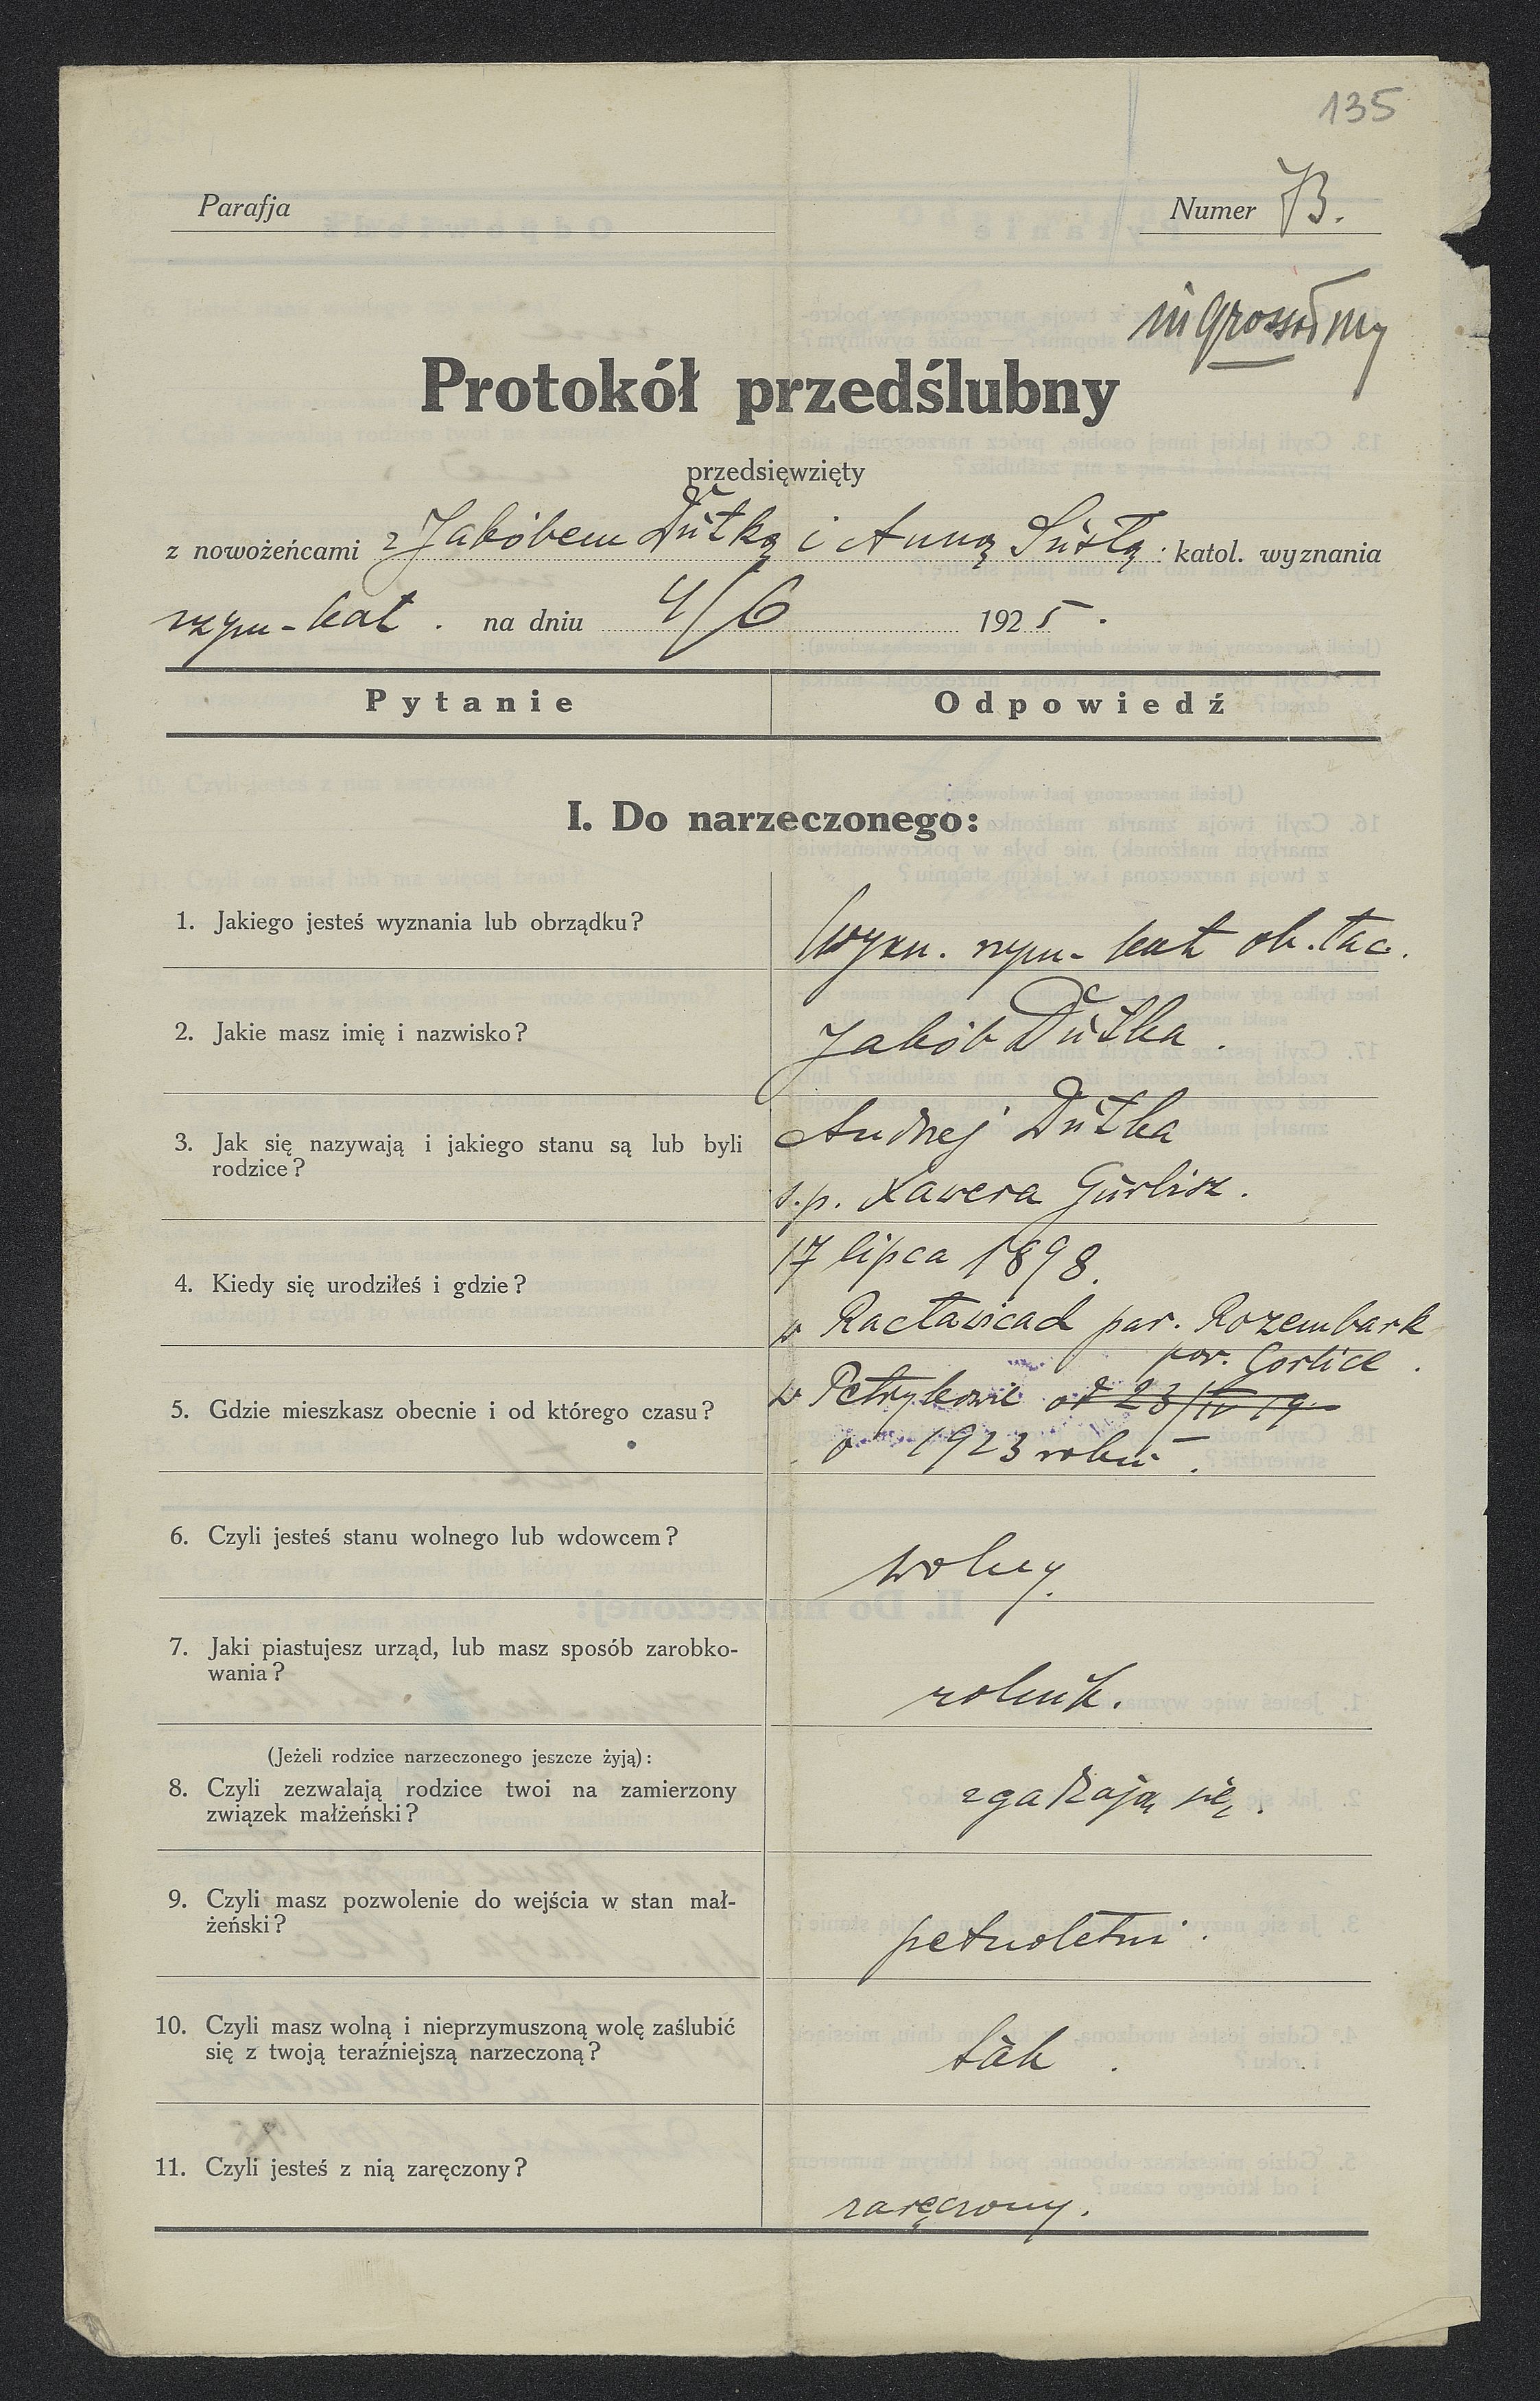 135
Parafja
Numer 73.
ingrossowany
Protokół przedślubny
przedsięwzięty
z nowożeńcami z Jakóbem Dutką i Anną Susłą. katol. wyznania
rzym-kat. na dniu 4/6 1925.
Pytanie Odpowiedź
I. Do narzeczonego:
1. Jakiego jesteś wyznania lub obrządku?
Wyzn. rzym-kat ob. łac.
2. Jakie masz imię i nazwisko?
Jakób Dutka.
3. Jak się nazywają i jakiego stanu są lub byli
rodzice?
Andrzej Dutka
ś.p. Xawera Gurbisz.
4. Kiedy się urodziłeś i gdzie?
17 lipca 1898.
w Racławicach par. Rozembark
pow. Gorlice.
5. Gdzie mieszkasz obecnie i od którego czasu?
w Petrykowie od 23/IV 19
o 1923 roku.
6. Czyli jesteś stanu wolnego lub wdowcem?
wolny.
7. Jaki piastujesz urząd, lub masz sposób zarobko-
wania?
rolnik.
(Jeżeli rodzice narzeczonego jeszcze żyją):
8. Czyli zezwalają rodzice twoi na zamierzony
związek małżeński?
zgadzają się.
9. Czyli masz pozwolenie do wejścia w stan mał-
żeński?
pełnoletni.
10. Czyli masz wolną i nieprzymuszoną wolę zaślubić
się z twoją teraźniejszą narzeczoną?
tak.
11. Czyli jesteś z nią zaręczony?
zaręczony.